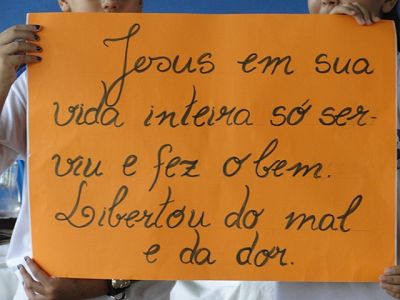 Jesus em sua
vida inteira só ser-
viu e fez o bem.
Libertou do mal
e da dor.